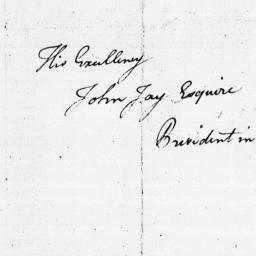 His Excellency
John Jay Esquire
President in